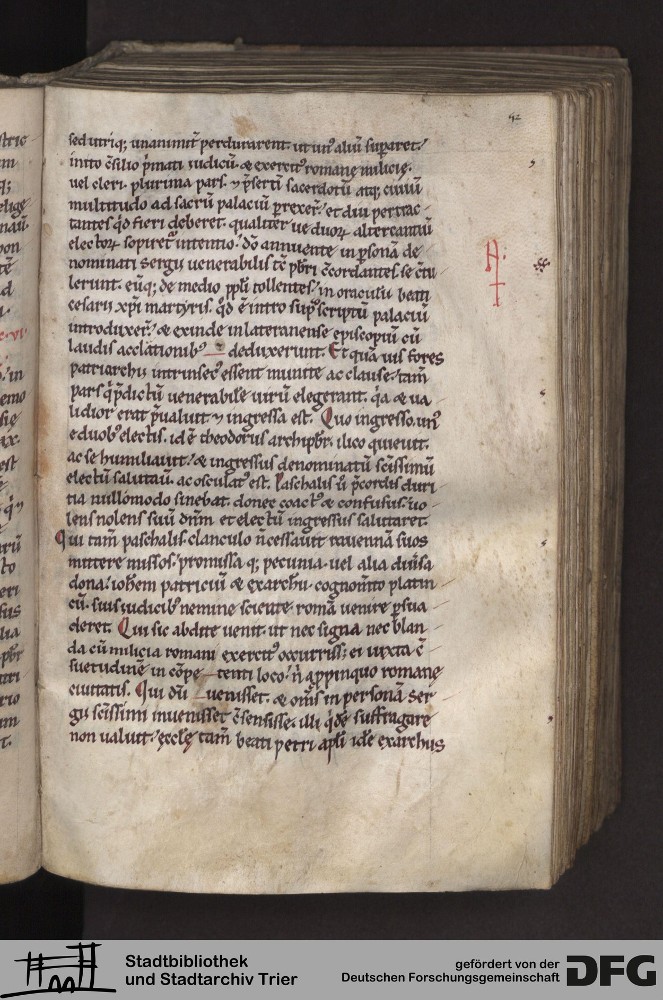 52
sed utriq; unanimit̄ perdurarent. ut un⁹ aliū supararet.
inito c̄silio p̄mati iudicū. & exercit⁹ romanę milicię.
uel cleri. plurima pars. ⁊ p̄serti sacerdotū atq; ciuiū
multitudo ad sacrū palaciū perrexer̄. et diu pertrac-
tantes qđ fieri deberet. qualiter ue duoꝝ altercantiū
electoꝝ sopiret᷑ intentio. dō annuente in p̄sonā de-
nominati sergii uenerabilis tc̄ p̄bri c̄cordantes. se c̄tu-
lerunt. eūq; de medio ppl̄i tollentes. in oraculū beati
cesarii xp̄i martyris. qđ ē intro sup̄scriptū palaciū
introduxer̄. & exinde in lateranense episcopiū cū
laudis acclationib⁹ deduxerunt. Et quā uis fores
patriarchii intrinsec⁹ essent munite ac clause. tam̄
pars q̄ p̄dictū uenerabilē uirū elegerant. q̇a & ua-
lidior erat p̄ualuit ⁊ ingressa est. Quo ingresso. un⁹
e duob⁹ electis. id ē theodorus archipb̄r. ilico quieuit.
ac se humiliauit. & ingressus denominatū sc̄issimū
electū salutau̅. ac osculat⁹ est. Paschalis ū̄ p̄cordis duri
tia nullomodo sinebat. donec coact⁹ & confusus. uo-
lens nolens suū dn̄m et electū ingressus salutaret.
Qui tam̄ paschalis. clanculo n̄ cessauit rauennā suos
mittere missos. promissa q; pecunia. uel alia diu̅sa
dona. ioh̄em patriciū & exarchū. cognom̄to platin-
cū. suis iudicib⁹ nemine sciente. romā uenire p̄sua-
deret. Qui sic abdite uenit. ut nec signa nec blan-
da cū milicia romani exercit⁹ occurriss; ei iuxta c̄-
suetudinē in cōpe- tenti loco. n̄ appinquo romanę
ciuitatis. Qui dū uenisset. & om̄s in personā ser-
gii sc̄issimi inuenisset c̄sensisse. illi qđē suffragare
non ualuit. ęccl̄ę tam̄ beati petri apl̄i idē exarchus
Stadtbibliothek
und Stadtarchiv Trier
gefördert von der
Deutschen Forschungsgemeinschaft
DFG